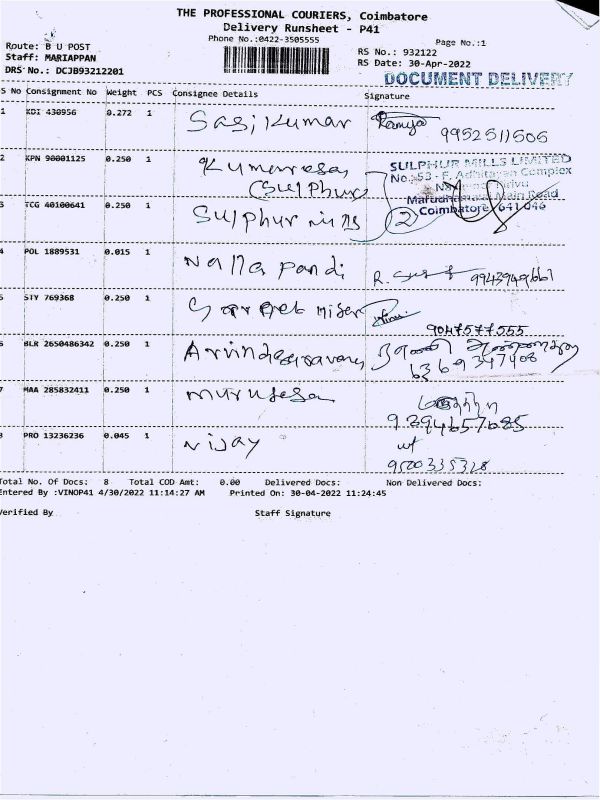 THE PROFESSIONAL COURIERS, Coimbatore
Delivery Runsheet - P41
Phone No.:0422-3505555
Page No.:1
Route: B U POST
RS No.: 932122
Staff: MARIAPPAN
RS Date: 30-Apr-2022
DRS No.: DCJB93212201
DOCUMENT DELIVERY
S No Consignment No Weight PCS Consignee Details Signature
1 KDI 430956 0.272 1 Sasikumar Ramya 9952511506
2 KPN 90001125 0.250 1 Kumaresan
(Sulphur
SULPHUR MILLS LIMITED
No.:53 - F, Adhitayan Complex
Marudhamalai Main Road
Coimbatore 641 046
3 TCG 40100641 0.250 1 Sulphur mills 2
4 POL 1889531 0.015 1 Nalla pandi R. 9943949661
5 STY 769368 0.250 1
9047577555
6 BLR 2650486342 0.250 1
6369347408
7 MAA 285832411 0.250 1 murugesan
9394657685
8 PRO 13236236 0.045 1 vijay
9500335328
Total No. Of Docs: 8 Total COD Amt: 0.00 Delivered Docs: Non Delivered Docs:
Entered By :VINOP41 4/30/2022 11:14:27 AM Printed On: 30-04-2022 11:24:45
Verified By Staff Signature